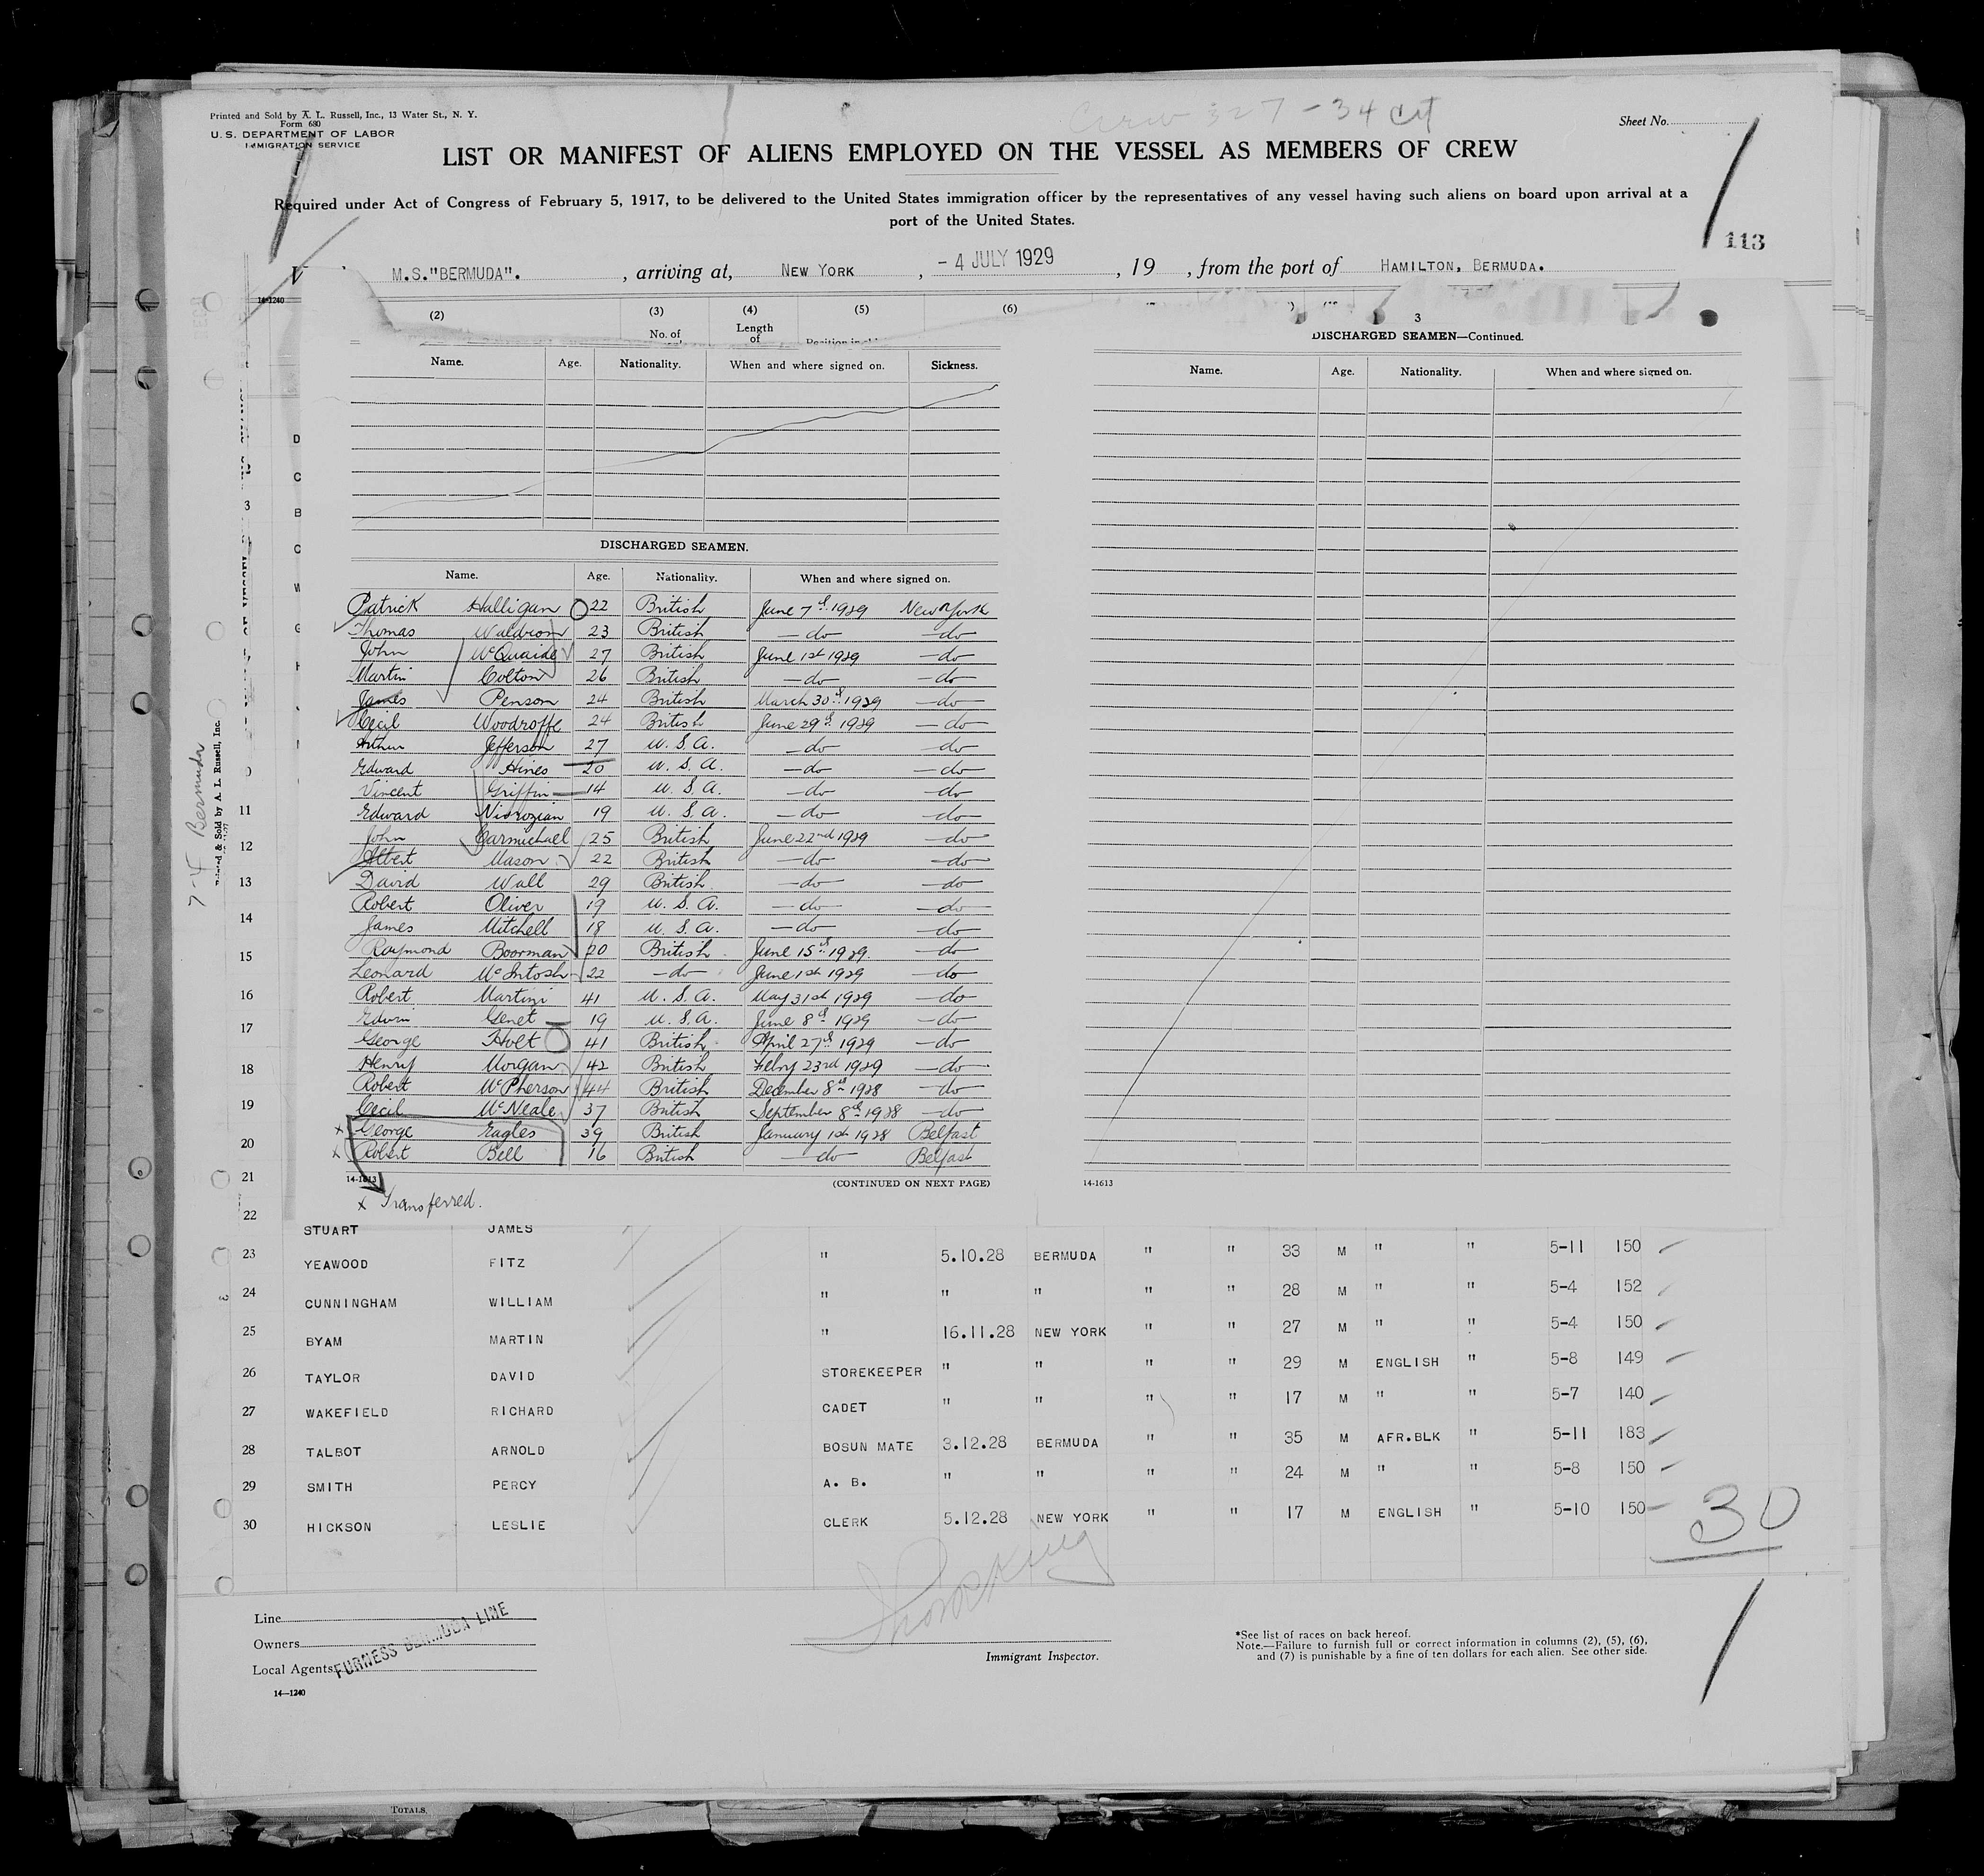 Printed and Sold by A. L. Russell, Inc., 13 Water St., N. Y.
Form 680
U. S. DEPARTMENT OF LABOR
IMMIGRATION SERVICE
Crew 327 - 34 Cit
Sheet No.
LIST OR MANIFEST OF ALIENS EMPLOYED ON THE VESSEL AS MEMBERS OF CREW
Required under Act of Congress of February 5, 1917, to be delivered to the United States immigration officer by the representatives of any vessel having such aliens on board upon arrival at a
port of the United States.
113
M.S."BERMUDA". , arriving at, NEW YORK , - 4 JULY 1929 , 19 , from the port of HAMILTON, BERMUDA.
14-1240
(2) (3) (4) (5) (6)
No. of Length of
3
DISCHARGED SEAMEN—Continued.
Name. Age. Nationality. When and where signed on. Sickness.
Name. Age. Nationality. When and where signed on.
DISCHARGED SEAMEN.
Name. Age. Nationality. When and where signed on.
Patrick Halligan 22 British June 7th 1929 New York
Thomas Waldron 23 British —do— —do—
John McQuaide 27 British June 1st 1929 —do—
Martin Colton 26 British —do— —do—
James Penson 24 British March 30th 1929 —do—
Cecil Woodroffe 24 British June 29th 1929 —do—
Arthur Jefferson 27 U. S. A. —do— —do—
Edward Hines 20 U. S. A. —do— —do—
Vincent Griffin 14 U. S. A. —do— —do—
Edward 19 U. S. A. —do— —do—
John Carmichael 25 British June 22nd 1929 —do—
Albert Mason 22 British —do— —do—
David Wall 29 British —do— —do—
Robert Oliver 19 U. S. A. —do— —do—
James Mitchell 18 U. S. A. —do— —do—
Raymond Boorman 20 British June 15th 1929. —do—
Leonard McIntosh 22 —do— June 1st 1929 —do—
Robert Martini 41 U. S. A. May 31st 1929 —do—
Edwin Genet 19 U. S. A. June 8th 1929 —do—
George Holt 41 British April 27th 1929 —do—
Henry Morgan 42 British Febry 23rd 1929 —do—
Robert McPherson 44 British December 8th 1928 —do—
Cecil McNeale 37 British September 8th 1928 —do—
x George Eagles 39 British January 1st 1928 Belfast
x Robert Bell 16 British —do— Belfast
14-1613 (CONTINUED ON NEXT PAGE)
14-1613
x Transferred.
7-4 Bermuda
Printed & Sold by A. L. Russell, Inc.
3
11
12
13
14
15
16
17
18
19
20
21
22 STUART JAMES
23 YEAWOOD FITZ " 5.10.28 BERMUDA " " 33 M " " 5-11 150
24 CUNNINGHAM WILLIAM " " " " " 28 M " " 5-4 152
25 BYAM MARTIN " 16.11.28 NEW YORK " " 27 M " " 5-4 150
26 TAYLOR DAVID STOREKEEPER " " " " 29 M ENGLISH " 5-8 149
27 WAKEFIELD RICHARD CADET " " " " 17 M " " 5-7 140
28 TALBOT ARNOLD BOSUN MATE 3.12.28 BERMUDA " " 35 M AFR.BLK " 5-11 183
29 SMITH PERCY A. B. " " " " 24 M " " 5-8 150
30 HICKSON LESLIE CLERK 5.12.28 NEW YORK " " 17 M ENGLISH " 5-10 150
30
Line
Owners
Local Agents
FURNESS BERMUDA LINE
14—1240
Immigrant Inspector.
*See list of races on back hereof.
Note.—Failure to furnish full or correct information in columns (2), (5), (6),
and (7) is punishable by a fine of ten dollars for each alien. See other side.
TOTALS.